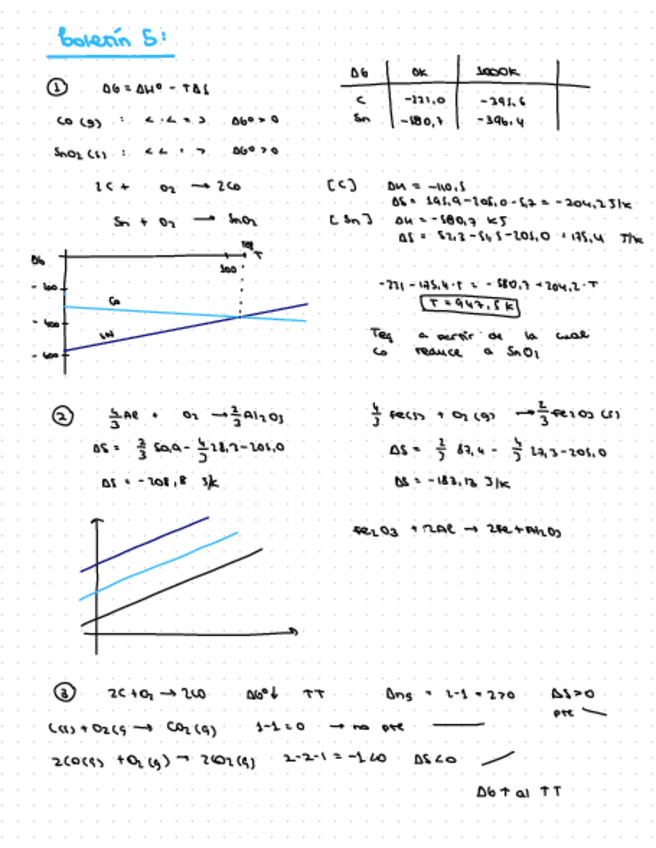 Boletín 5:
① ΔG = ΔH° - TΔS
CO (g) : < . < = > ΔG° > 0
SnO2 (s) : < < . > ΔG° > 0
2C + O2 → 2CO
Sn + O2 → SnO2
ΔG 0K 1000K
C -221,0 -395,6
Sn -580,7 -396,4
[C] ΔH = -110,5
[Sn] ΔH = -580,7 KJ
ΔG
T
500
-400
-600
CO
Sn
T = 947,5 K
Teq a partir de la cual
CO reduce a SnO2
② 4/3 Al + O2 → 2/3 Al2O3
ΔS = 2/3 50,9 - 4/3 28,3 - 205,0
ΔS = -208,8 J/K
4/3 Fe(s) + O2 (g) → 2/3 Fe2O3 (s)
ΔS = 2/3 87,4 - 4/3 27,3 - 205,0
ΔS = -183,13 J/K
Fe2O3 + 2Al → 2Fe + Al2O3
③ 2C + O2 → 2CO ΔG°↓ ↑T Δng = 2-1 = 1 > 0 ΔS > 0
pte
C(s) + O2(g → CO2 (g) 1-1 = 0 → no pte
2CO(g) + O2 (g) → 2CO2 (g) 2-2-1 = -1 < 0 ΔS < 0
ΔG ↑ al ↑T